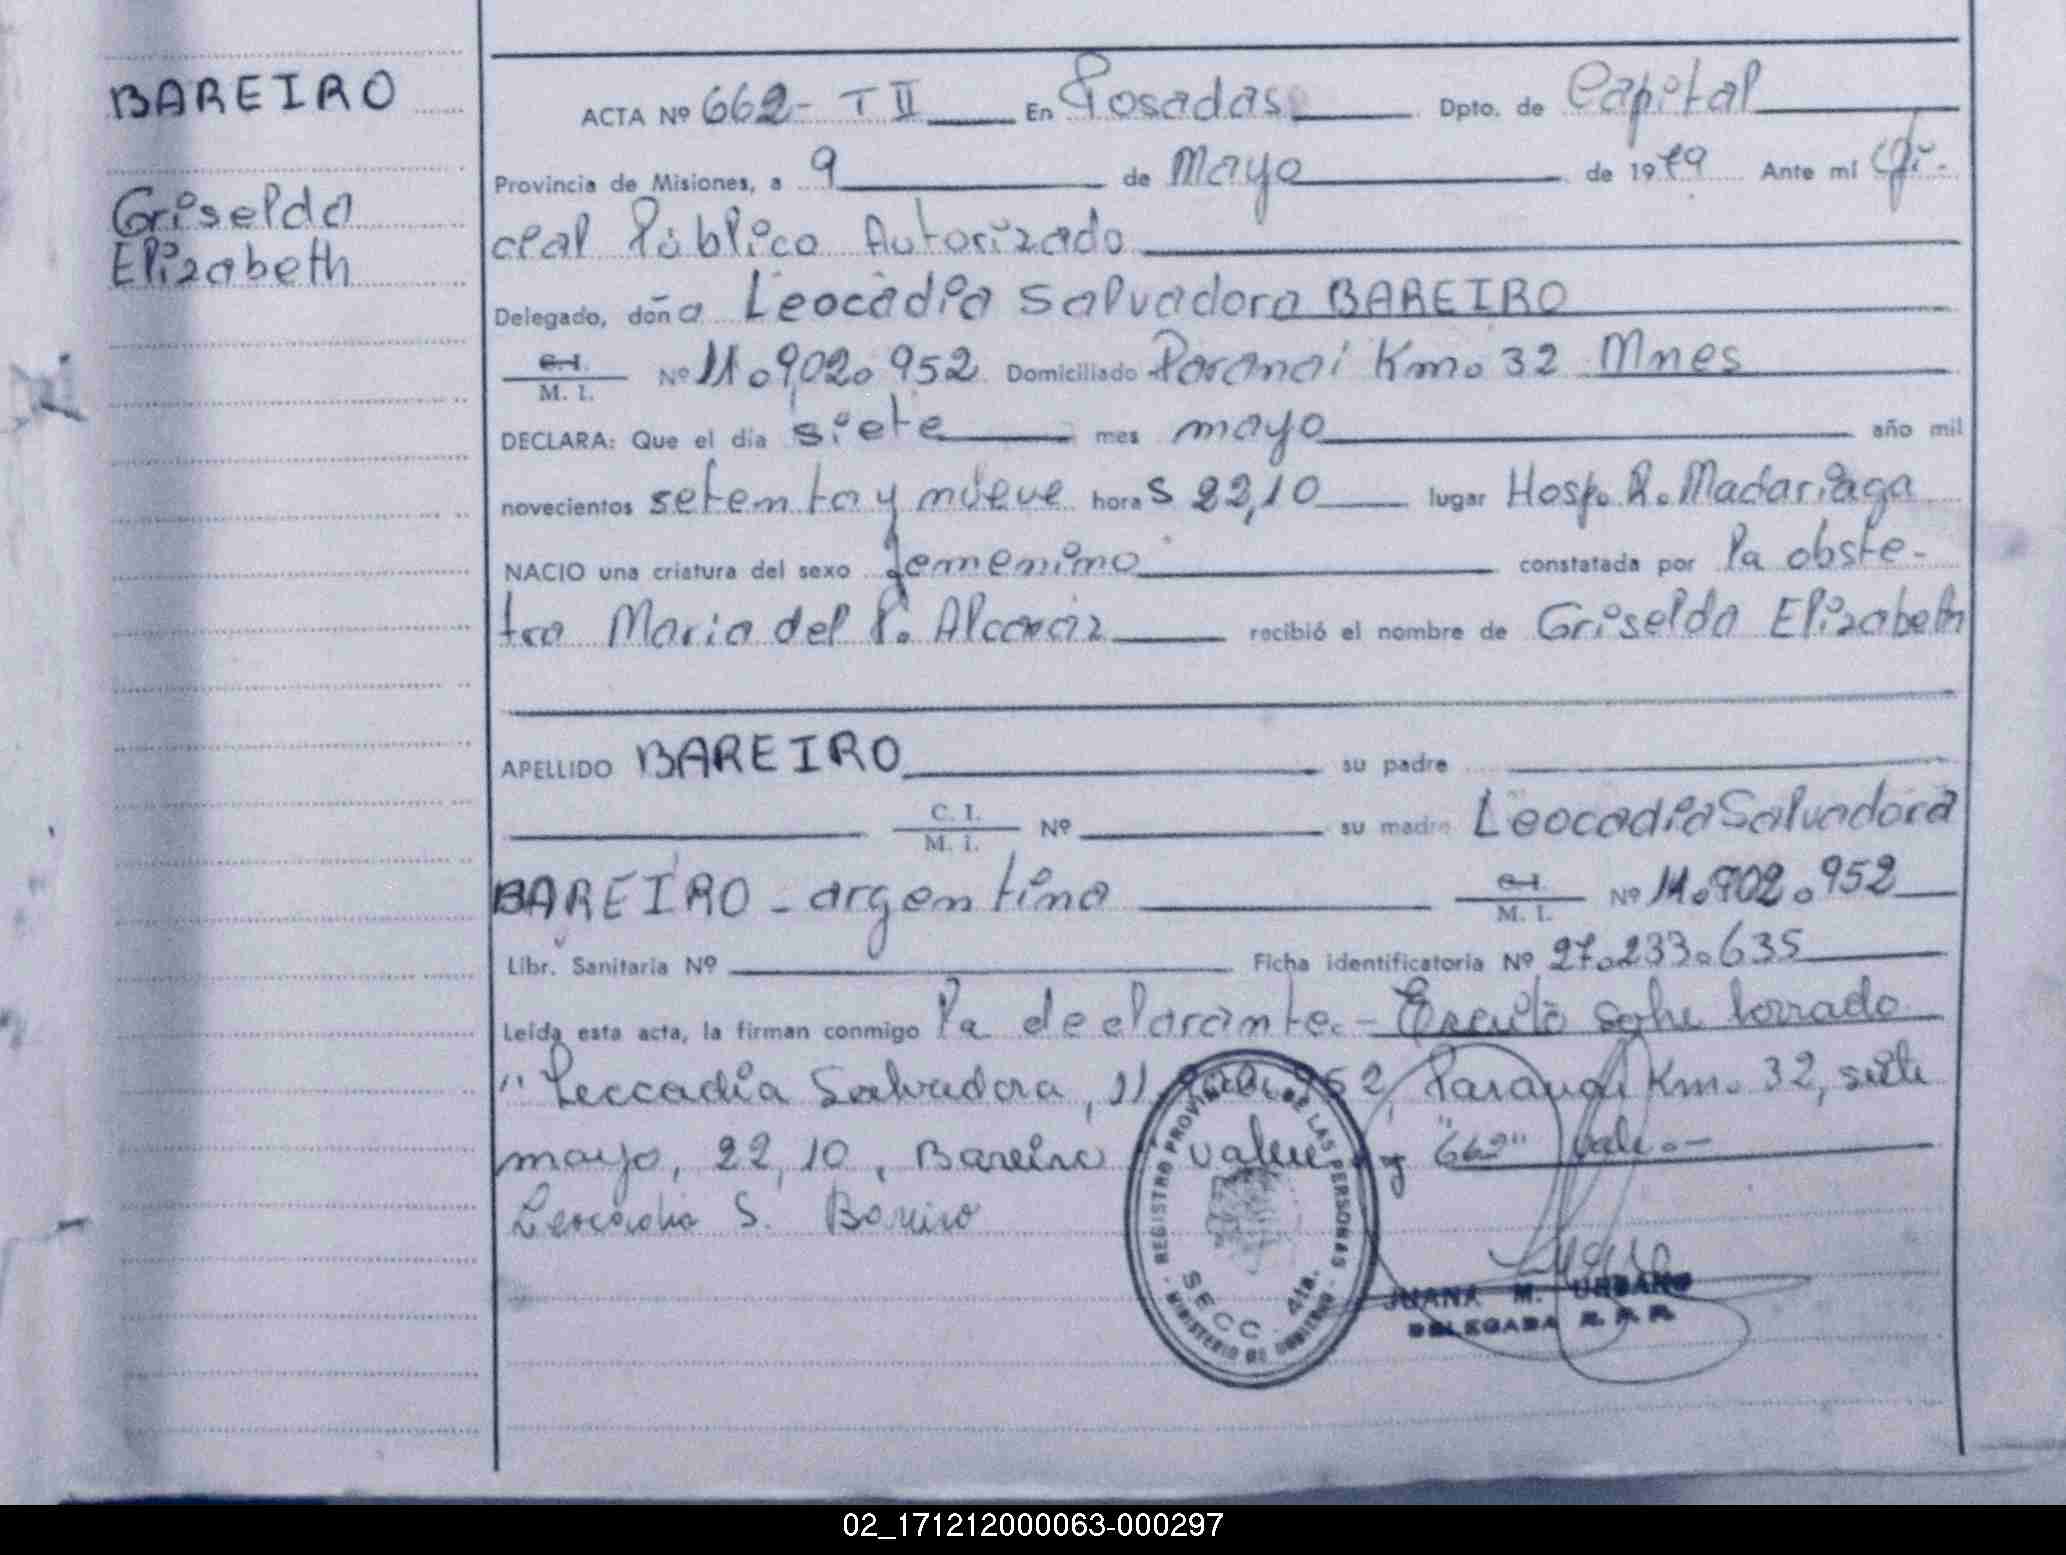 BAREIRO
Griselda
Elizabeth
ACTA Nº 662- T II En Posadas Dpto. de Capital
Provincia de Misiones, a 9 de Mayo de 1979 Ante mi Ofi-
cial Público Autorizado
Delegado, doña Leocadia Salvadora BAREIRO
C.I. M. I. Nº 11.902.952 Domiciliado Paranai Km. 32 Mnes
DECLARA: Que el día siete mes mayo año mil
novecientos setenta y nueve horas 22,10 lugar Hosp. R. Madariaga
NACIO una criatura del sexo femenino constatada por la obste-
tra Maria del P. Alcaraz recibió el nombre de Griselda Elizabeth
APELLIDO BAREIRO su padre
C. I. M. I. Nº su madre Leocadia Salvadora
BAREIRO - argentina C.I. M. I. Nº 11.902.952
Libr. Sanitaria Nº Ficha identificatoria Nº 27.233.635
Leída esta acta, la firman conmigo la declarante.- Escrito sobre borrado
"Leocadia Salvadora, 11.902.952, Paranai Km. 32, siete
mayo, 22,10, Bareiro valen y "662" vale.-
Leocadia S. Bareiro
REGISTRO PROVINCIAL DE LAS PERSONAS
SECC. 4ta.
MINISTERIO DE GOBIERNO
JUANA M. URBANO
DELEGADA R. P. P.
02_171212000063-000297